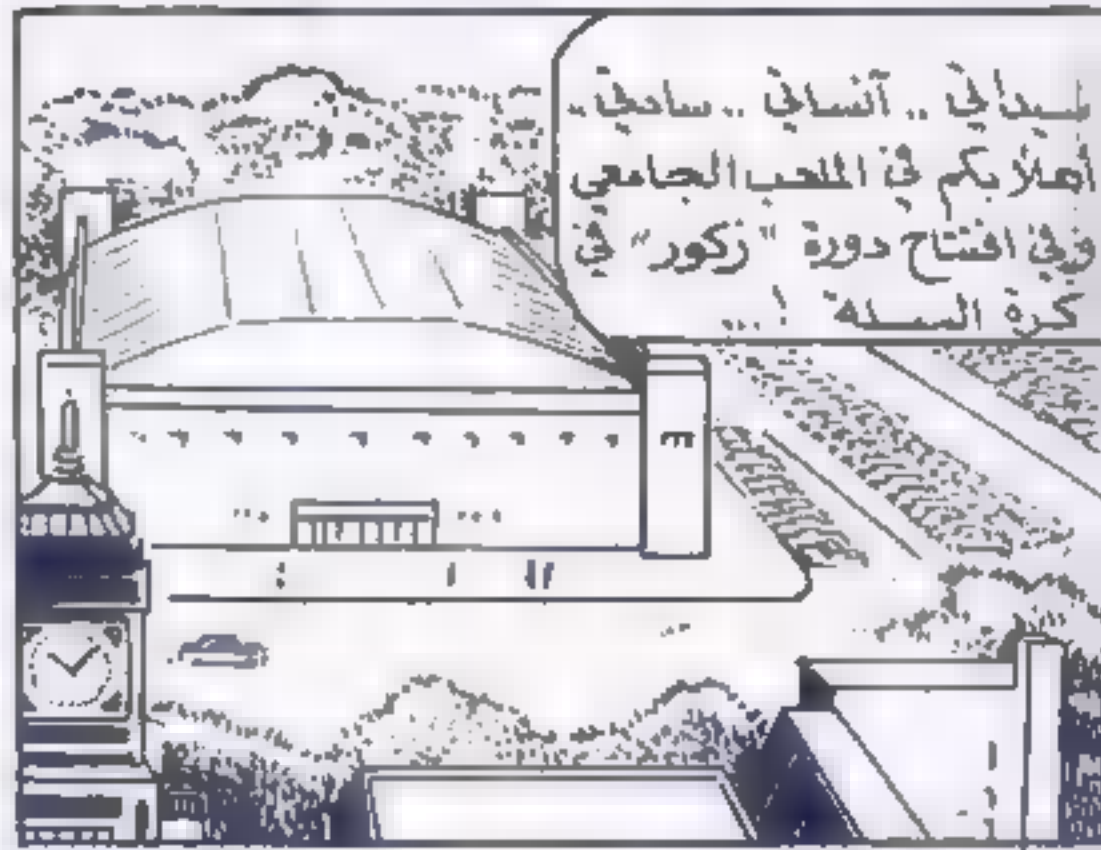 سيداتي .. آنساتي .. سادتي ..
أهلا بكم في الملعب الجامعي
وفي افتتاح دورة "زكور" في
كرة السلة ! ...